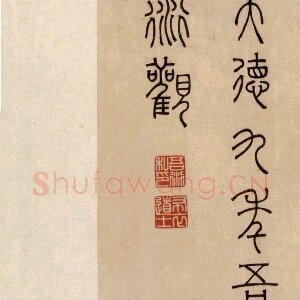 大德九年吾
衍觀
吾衍私印
布衣道士
Shufawang.CN